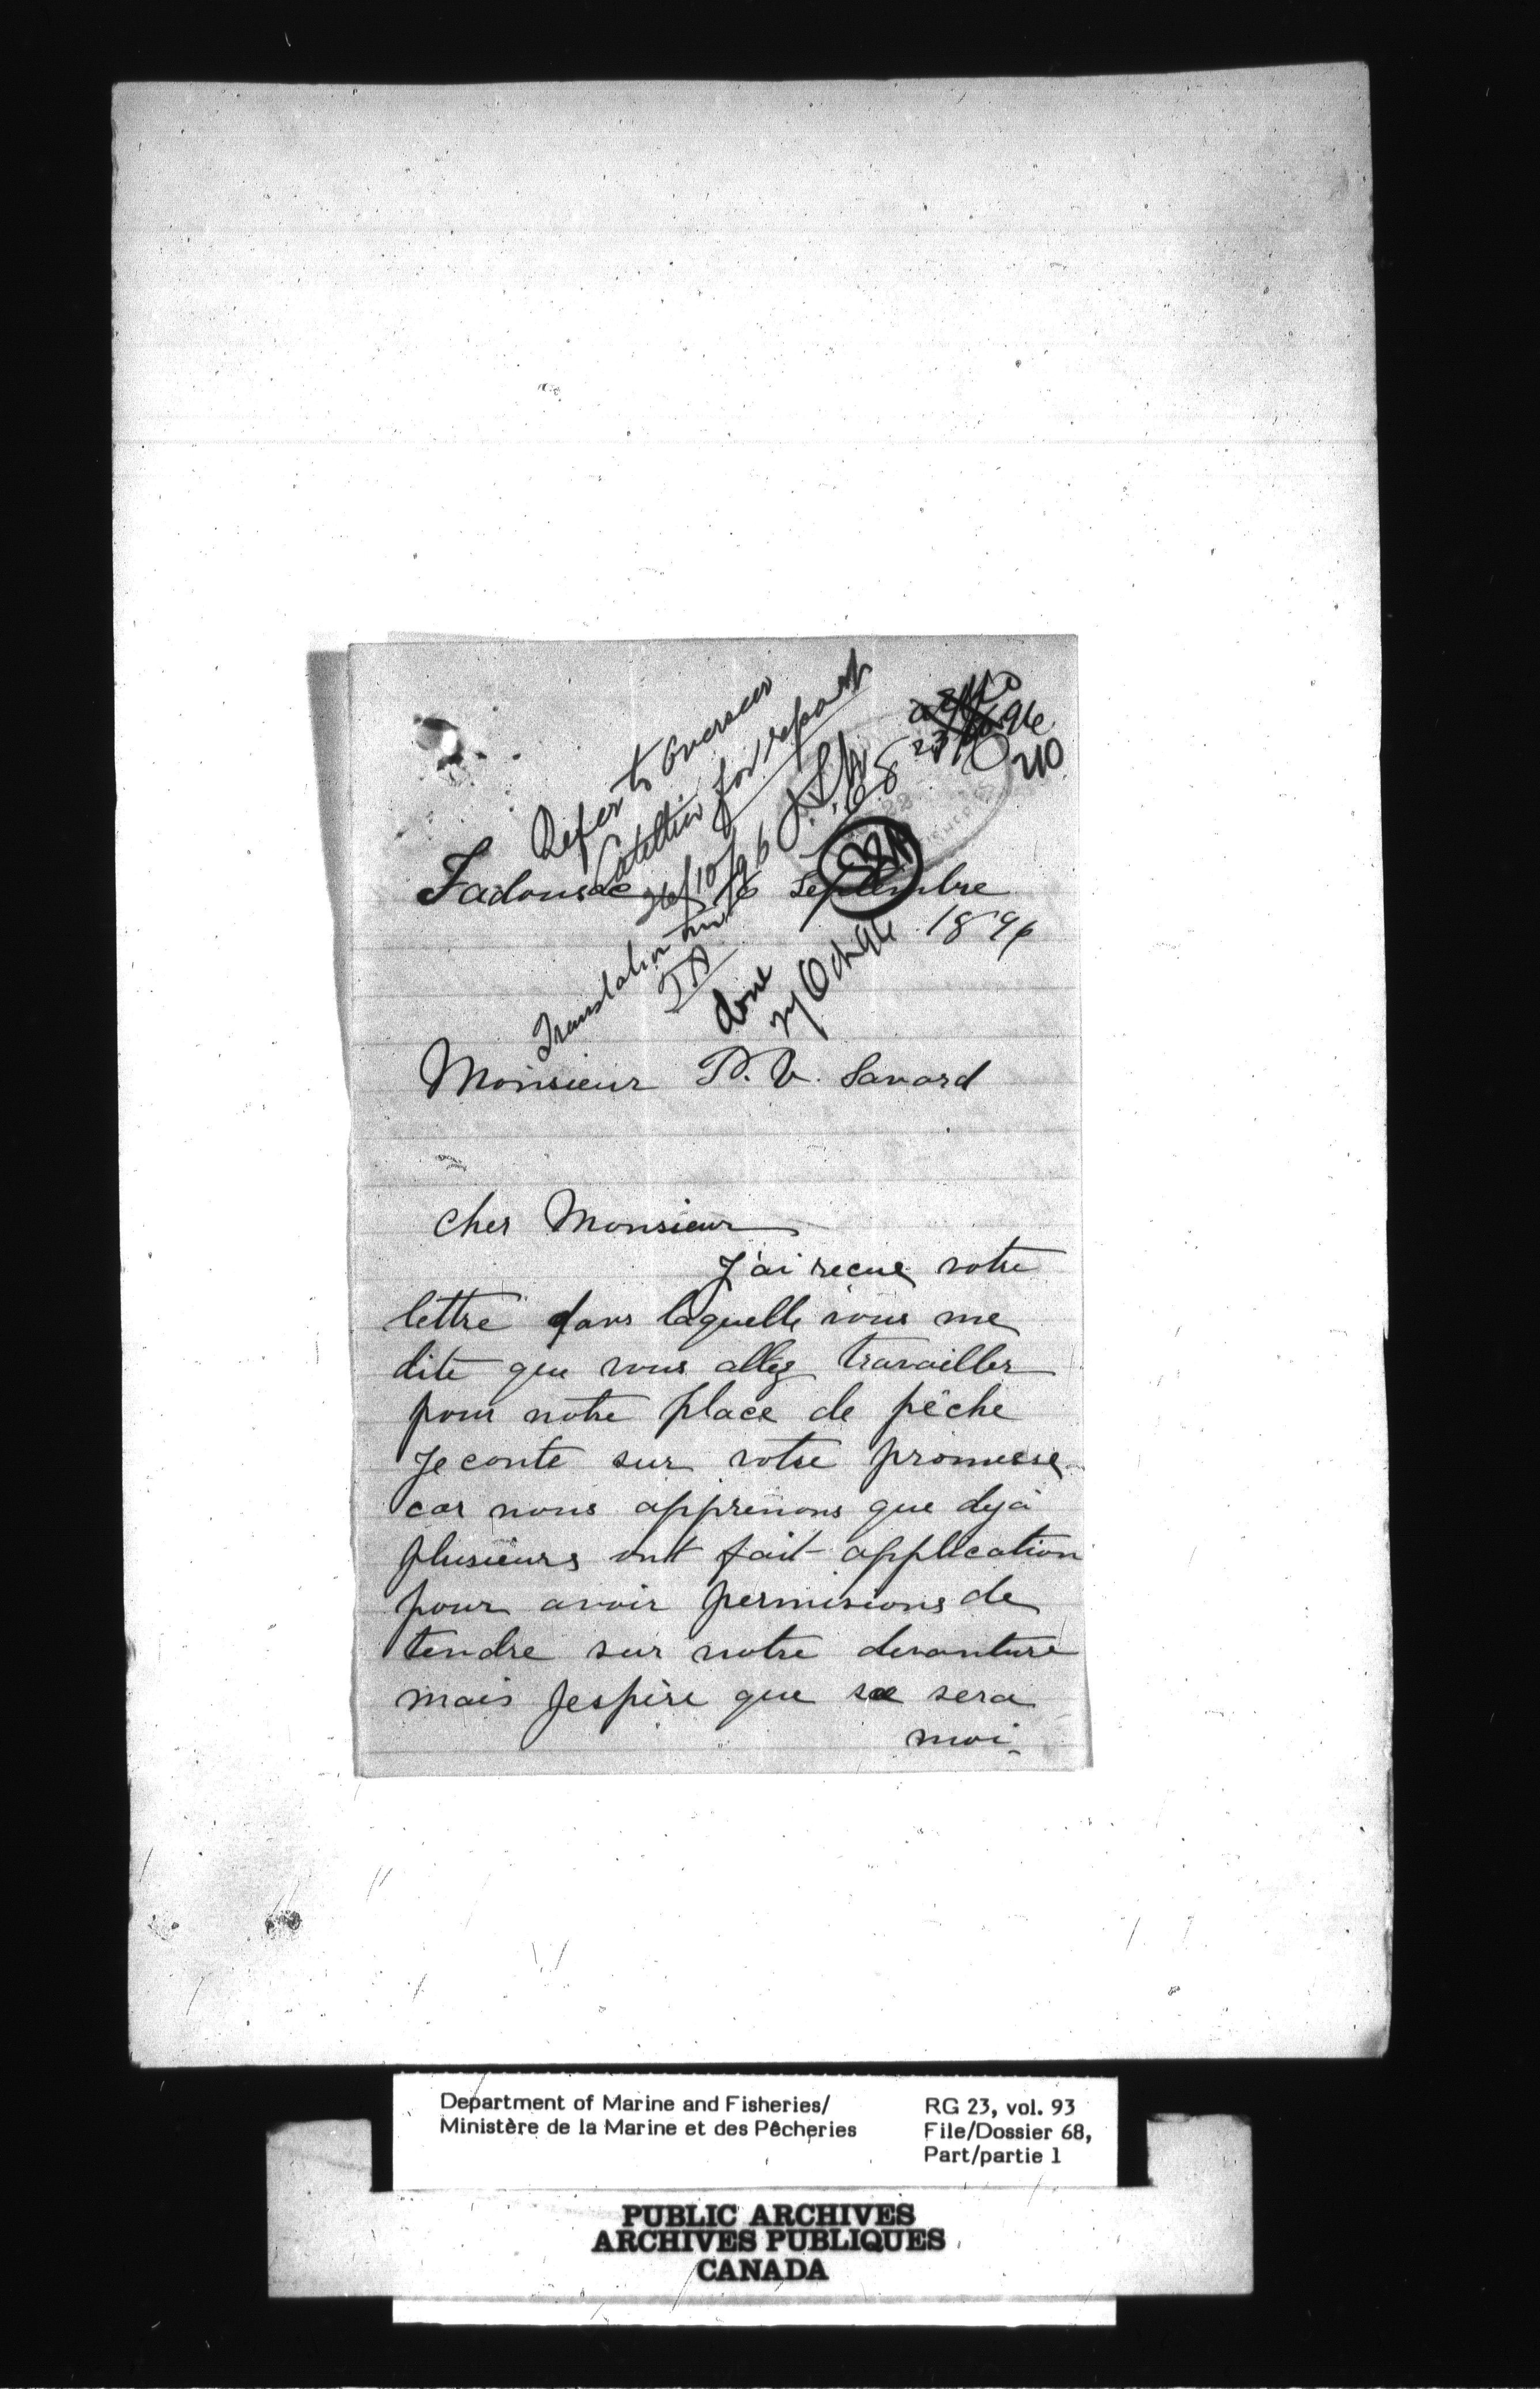 Refer to Overseer
Catellier for report
26/10/96
23/10/96
210
68
Tadousac 16 Septembre
1896
Translation
done
27 Oct 96
Monsieur P. V. Savard
cher Monsieur
J'ai recue votre
lettre dans laquelle vous me
dite que vous allez travailler
pour notre place de pêche
Je conte sur votre promesse
car nous apprenons que dejà
plusieurs ont fait application
pour avoir permisions de
tendre sur notre devanture
mais Jespère que sa sera
moi
Department of Marine and Fisheries/
Ministère de la Marine et des Pêcheries
RG 23, vol. 93
File/Dossier 68,
Part/partie 1
PUBLIC ARCHIVES
ARCHIVES PUBLIQUES
CANADA